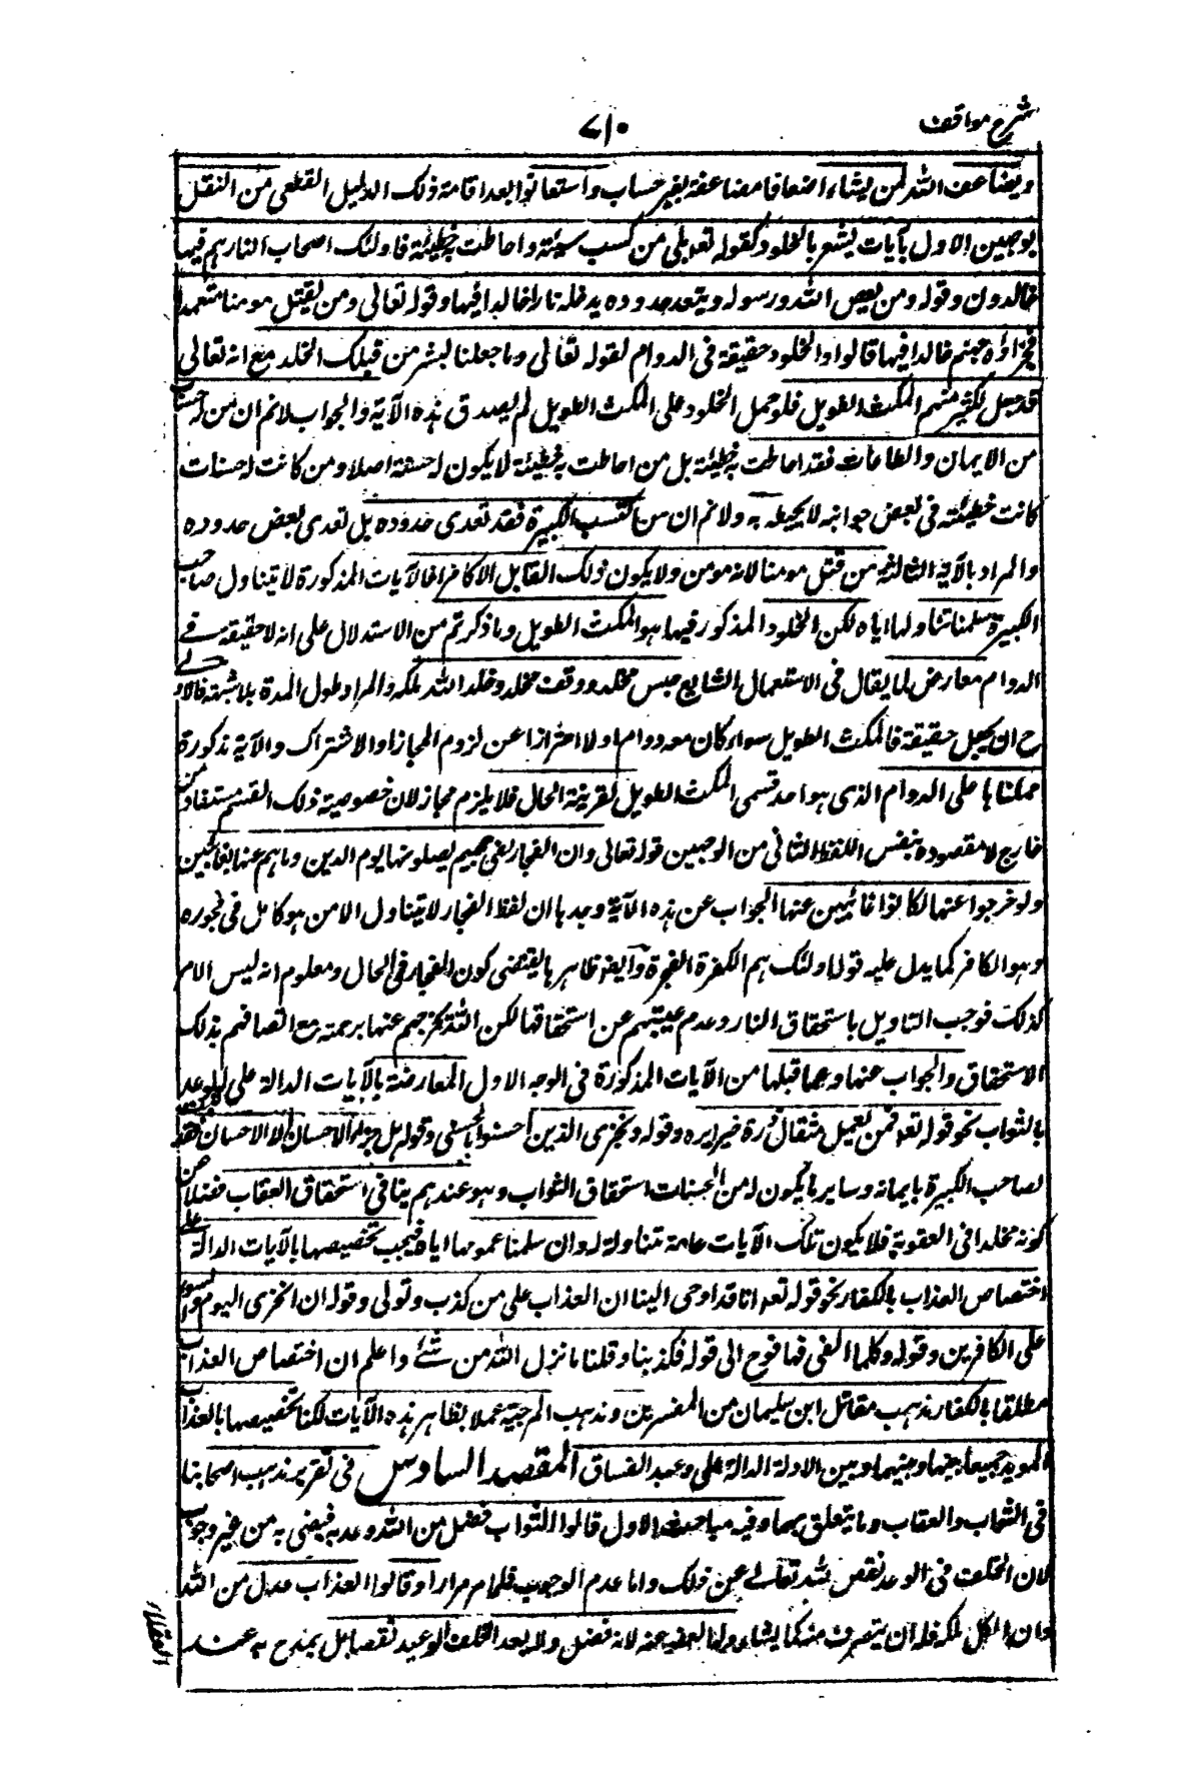 شرح مواقف
۷۱۰
ويضاعف الله لمن يشاء اضعافا مضاعفة بغير حساب واستعانوا بعد اقامة ذلك الدليل القطعي من النقل
بوجهين الاول بآيات تشعر بالخلود كقوله تعه بلى من كسب سيئة واحاطت به خطيئته فاولئك اصحاب النار هم فيها
خالدون وقوله ومن يعص الله ورسوله ويتعد حدوده يدخله نارا خالدا فيها وقوله تعالى ومن يقتل مومنا متعمدا
فجزاؤه جهنم خالدا فيها قالوا والخلود حقيقة في الدوام لقوله تعالى وما جعلنا لبشر من قبلك الخلد مع انه تعالى
قد جعل لكثير منهم المكث الطويل فلو حمل الخلود على المكث الطويل لم يصدق هذه الآية والجواب لا نم ان من له حسنات
من الايمان والطاعات فقد احاطت به خطيئته بل من احاطت به خطيئته لا يكون له حسنة اصلا ومن كانت له حسنات
كانت خطيئته في بعض جوانبه لا يحيطه به ولا نم ان من اكتسب الكبيرة فقد تعدى حدوده بل تعدى بعض حدوده
والمراد بالآية الثالثة من قتل مومنا لانه مومن ولا يكون ذلك القاتل الا كافرا فالآيات المذكورة لا تتناول صاحب
الكبيرة سلمنا تناولها اياه لكن الخلود المذكور فيها هو المكث الطويل وما ذكرتم من الاستدلال على انه لا حقيقة في
الدوام معارض بما يقال في الاستعمال الشايع حبس مخلد ووقف مخلد وخلد الله ملكه والمراد طول المدة بلا شبهة فالاولى
ح ان يجعل حقيقة في المكث الطويل سواء كان معه دوام اولا احترازا عن لزوم المجاز او الاشتراك والآية مذكورة
حملناها على الدوام الذى هو احد قسمى المكث الطويل لقرينة الحال فلا يلزم مجاز لان خصوصية ذلك القسم مستفادة من
خارج لا مقصودة بنفس اللفظ الثاني من الوجهين قوله تعالى وان الفجار لفي جحيم يصلونها يوم الدين وما هم عنها بغائبين
ولو خرجوا عنها لكانوا غائبين عنها الجواب عن هذه الآية وحدها ان لفظ الفجار لا يتناول الا من هو كامل في فجوره
وهو الكافر كما يدل عليه قوله اولئك هم الكفرة الفجرة وايضه ظاهرها يقتضى كون الفجار في الحال ومعلوم انه ليس الامر
كذلك فوجب التاويل باستحقاق النار وعدم غيبتهم عن استحقاقها لكن الله يخرجهم عنها برحمته مع اتصافهم بذلك
الاستحقاق والجواب عنها وعما قبلها من الآيات المذكورة في الوجه الاول المعارضة بالآيات الدالة على الوعد
بالثواب نحو قوله تعه فمن يعمل مثقال ذرة خيرا يره وقوله ويجزى الذين احسنوا بالحسنى وقوله هل جزاء الاحسان الا الاحسان فقد ثبت
لصاحب الكبيرة بايمانه وساير ما يكون له من الحسنات استحقاق الثواب وهو عندهم ينافي استحقاق العقاب فضلا عن
كونه مخلدا في العقوبة فلا يكون تلك الآيات عامة متناولة له وان سلمنا عمومها اياه فيجب تخصيصها بالآيات الدالة على
اختصاص العذاب بالكفار نحو قوله تعه انا قد اوحى الينا ان العذاب على من كذب وتولى وقوله ان الخزى اليوم والسوء
على الكافرين وقوله وكلما القى فيها فوج الى قوله فكذبنا وقلنا ما نزل الله من شئ واعلم ان اختصاص العذاب
مطلقا بالكفار مذهب مقاتل ابن سليمان من المفسرين ومذهب المرجئة عملا بظاهر هذه الآيات لكنا نخصصها بالعذاب
المويد جمعا بينها وبين الادلة الدالة على وعيد الفساق المقصد السادس في تقرير مذهب اصحابنا
في الثواب والعقاب وما يتعلق بهما وفيه مباحث الاول قالوا الثواب فضل من الله وعد به فيفى به من غير وجوب
لان الخلف في الوعد نقص لله تعالى عن ذلك واما عدم الوجوب فلما مر مرارا وقالوا العذاب عدل من الله
وان الكل ملكه فله ان يتصرف منه كما يشاء وله العفو عنه لانه فضل ولا يعد الخلف الوعيد نقصا بل يمدح به عند
العقلاء